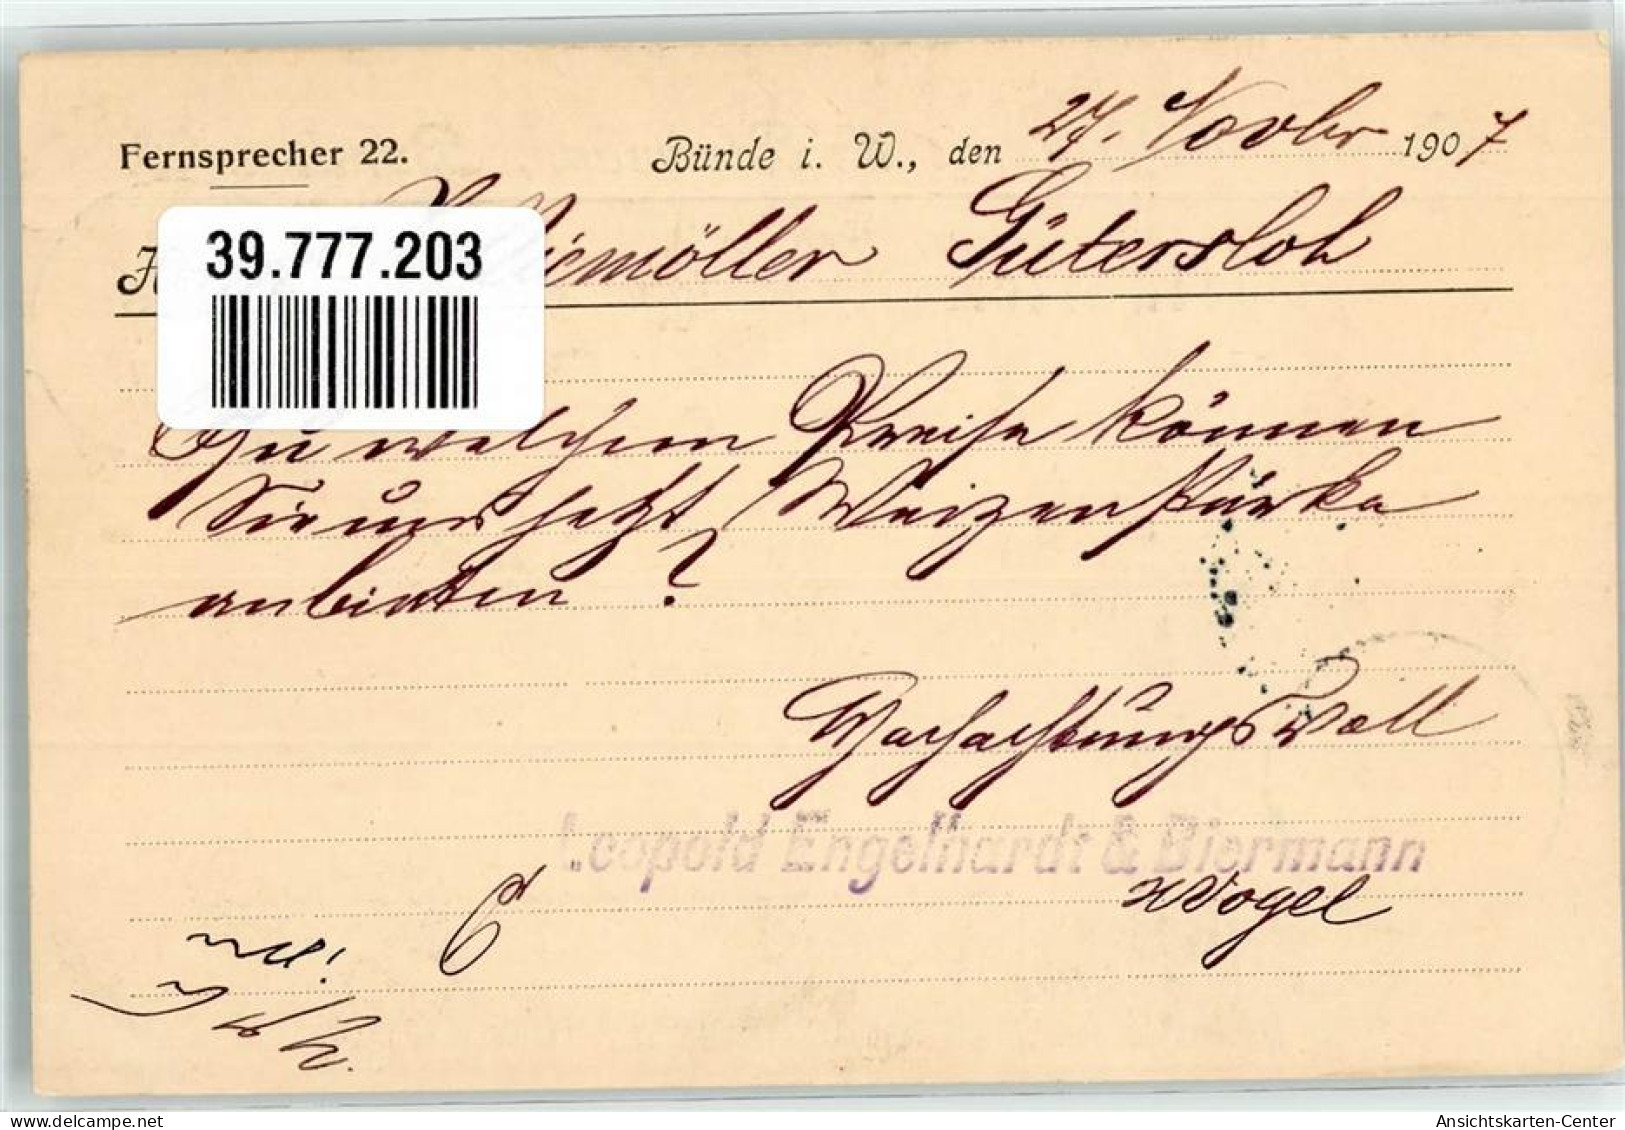 Fernsprecher 22.
Bünde i. W., den 27. Novbr 1907
Niemöller Gütersloh
39.777.203
Zu welchem Preise können
Sie uns jetzt Weizenstärke
anbieten?
Hochachtungsvoll
Leopold Engelhardt & Biermann
Vogel
Ansichtskarten-Center
www.delcampe.net